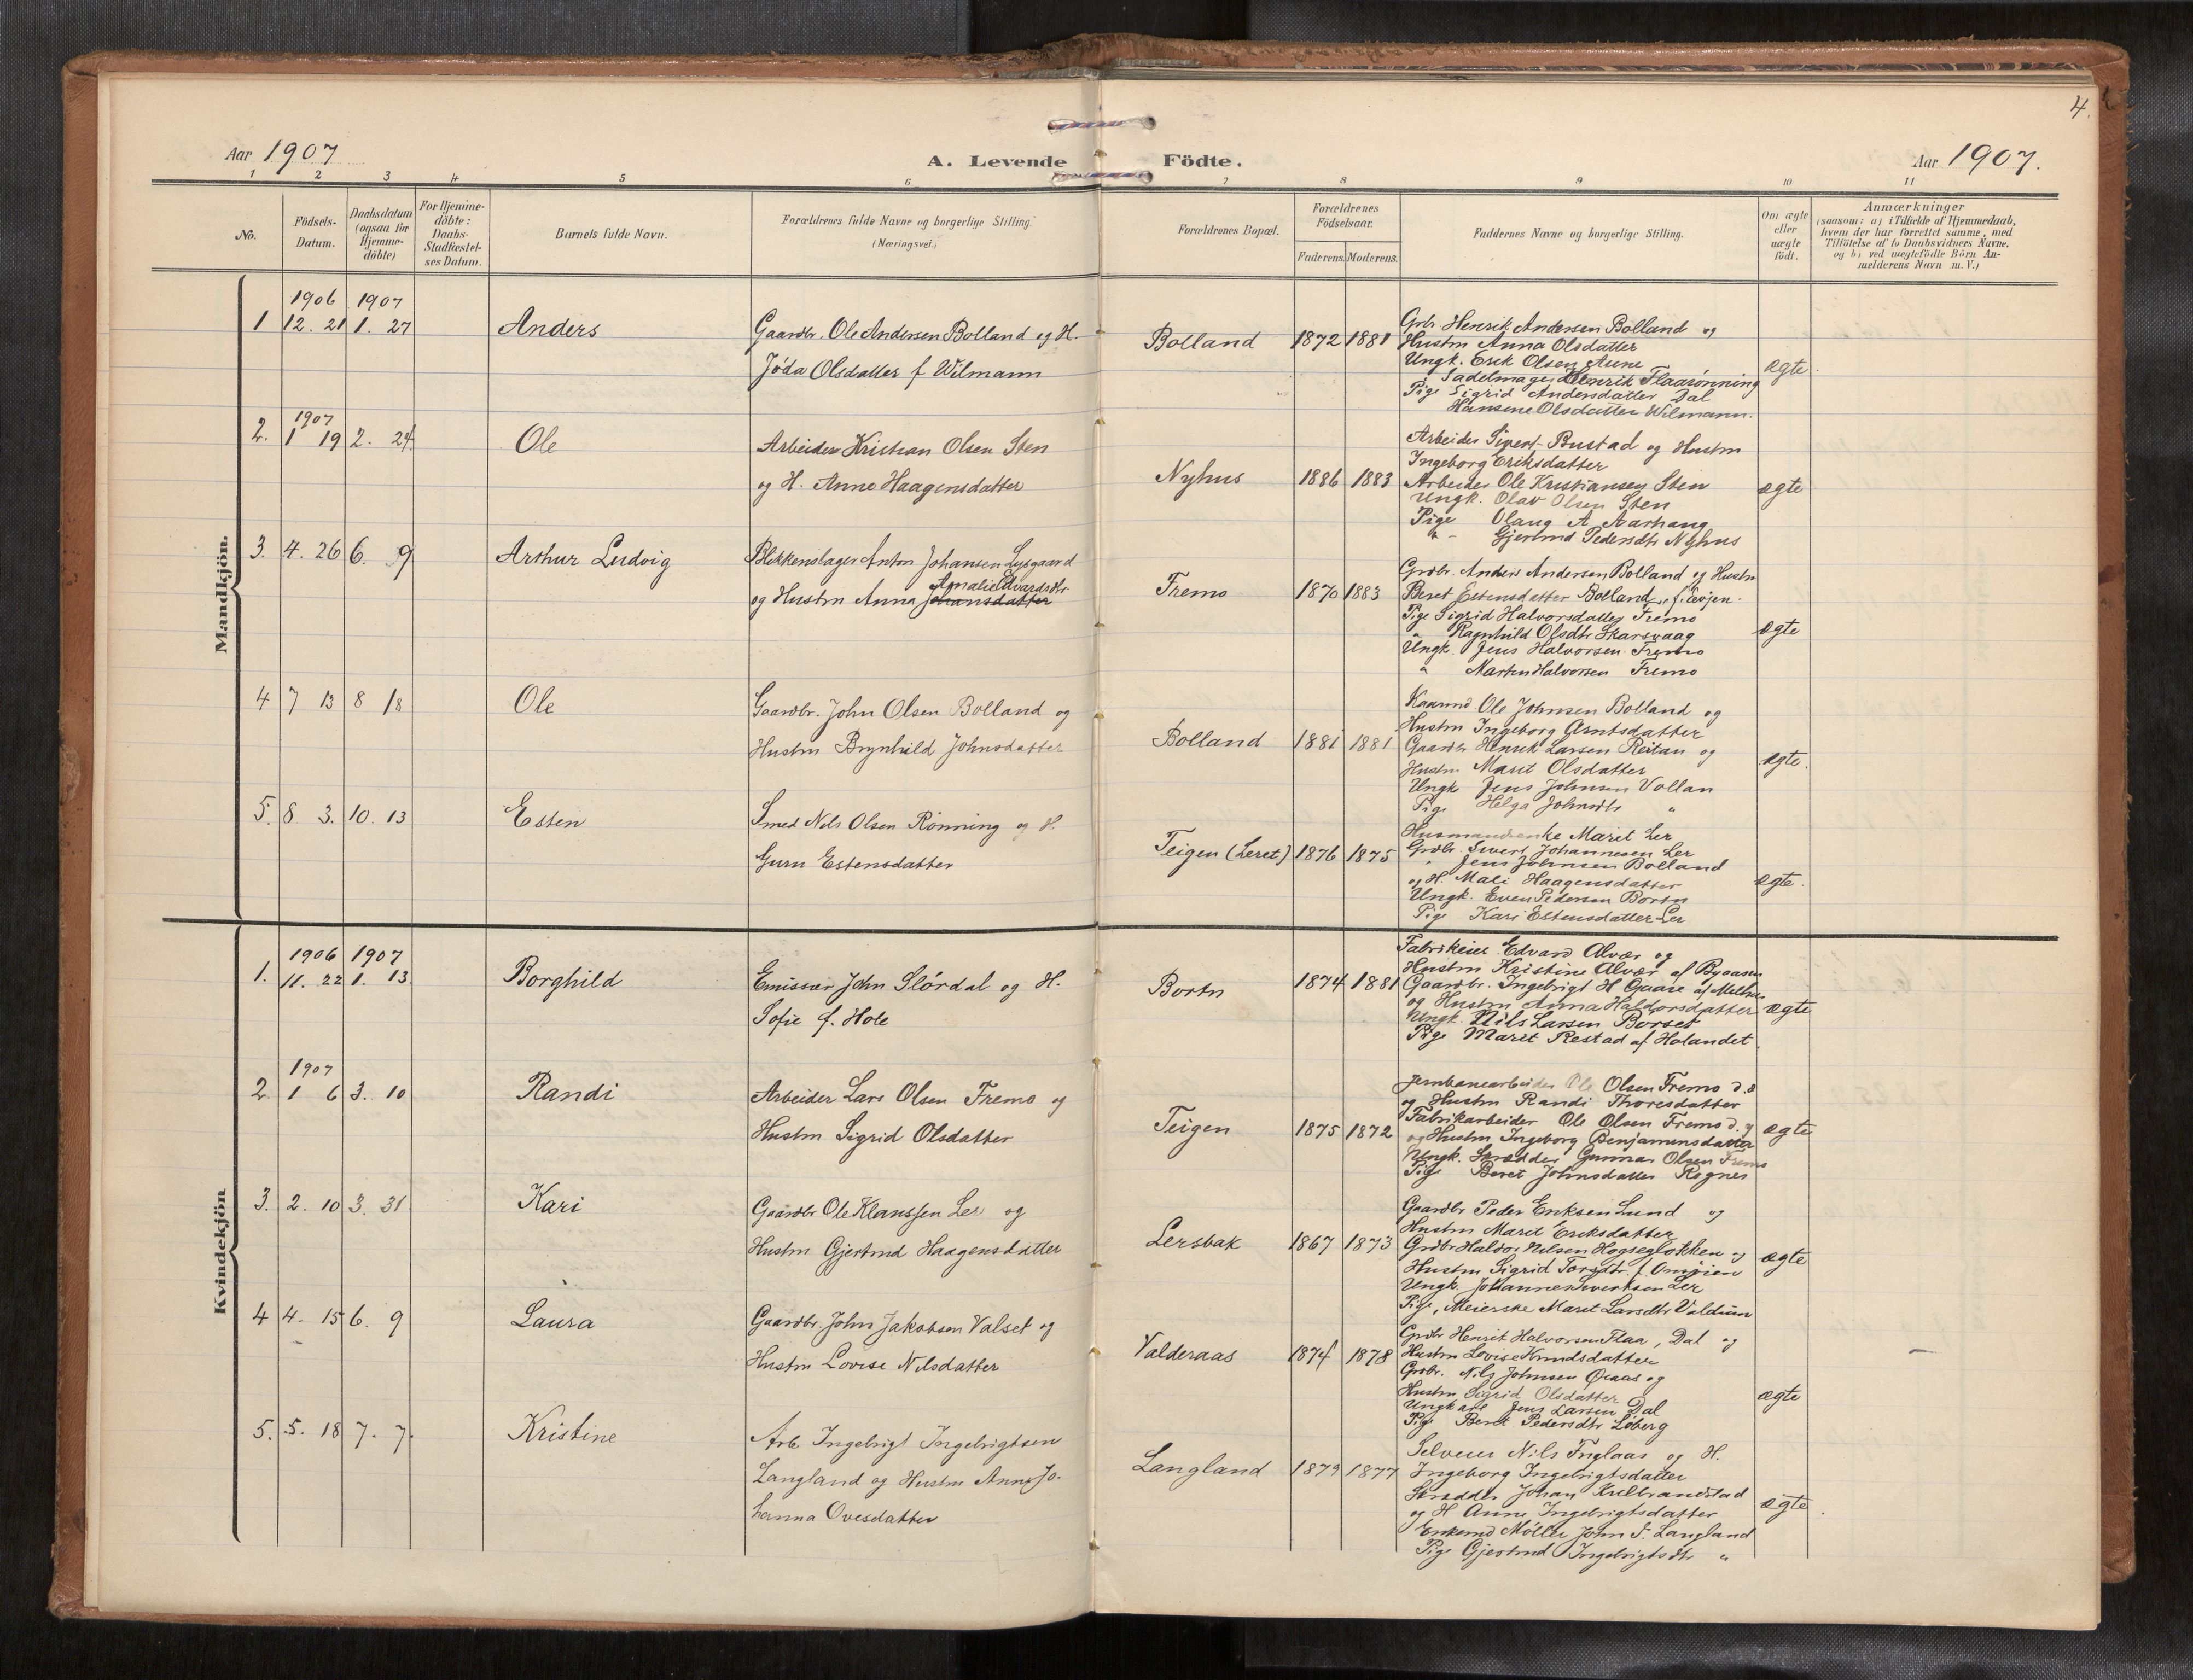 4.
Aar 1907
A. Levende Födte.
Aar 1907.
1 2 3 4 5 6 7 8 9 10 11
No.
Födsels-Datum.
Daabsdatum (ogsaa for Hjemme-döbte)
For Hjemme-döbte: Daabs-Stadfæstel-ses Datum.
Barnets fulde Navn.
Forældrenes fulde Navne og borgerlige Stilling (Næringsvei.)
Forældrenes Bopæl.
Forældrenes Födselsaar.
Faderens. Moderens.
Faddernes Navne og borgerlige Stilling.
Om ægte eller uægte födt.
Anmærkninger
(saasom: a) i Tilfælde af Hjemmedaab,
hvem der har forrettet samme, med
Tilföielse af to Daabsvidners Navne.
og b) ved uægtefödte Börn An-
melderens Navn m. V.)
Mandkjön.
1906 1907
1 12. 21 1. 27 Anders
Gaardbr. Ole Andersen Bolland og H.
Jóda Olsdatter f Wilmann
Bolland 1872 1881
Grbr. Henrik Andersen Bolland og
Hustru Anna Olsdatter
Ungk. Erik Olsen Aune
Sadelmager Henrik Flaarønning
Pige Sigrid Andersdatter Dal
Hansene Olsdatter Wilmann.
ægte
1907
2. 1 19 2. 24. Ole
Arbeider Kristian Olsen Sten
og H. Anne Haagensdatter
Nyhus 1886 1883
Arbeider Sivert Bustad og Hustru
Ingeborg Eriksdatter
Arbeider Ole Kristiansen Sten
Ungk. Olav Olsen Sten
Pige Olaug A Aarhaug
" - Gjertrud Pedersdtr Nyhus
ægte
3. 4. 26 6. 9 Arthur Ludvig
Blikkenslager Anton Johansen Lysgaard
Amalie Edvardsdtr
og Hustru Anna Johansdatter
Fremo 1870 1883
Grdbr. Anders Andersen Bolland og Hustru
Beret Estensdatter Bolland, f.
Pige Sigrid Halvorsdatter Fremo
" Ragnhild Olsdtr Skarsvaag
Ungk. Jens Halvorsen Fremo
" Marten Halvorsen Fremo
ægte
4 7 13 8 18 Ole
Gaardbr. John Olsen Bolland og
Hustru Brynhild Johnsdatter
Bolland 1881 1881
Kaarmd Ole Johnsen Bolland og
Hustru Ingeborg Arntsdatter
Gaardb Henrik Larsen Reitan og
Hustru Marit Olsdatter
Ungk Jens Johnsen Vollan
Pige Helga Johnsdtr "
ægte.
5. 8 3. 10. 13 Esten
Smed Nils Olsen Rönning og H.
Guru Estensdatter
Teigen (Leret) 1876 1875
Husmandsenke Marit Ler
Grdbr. Sivert Johannesen Ler
" Jens Johnsen Bolland
og H. Mali Haagensdatter
Ungk. Even Pedersen Bortn
Pige Kari Estensdatter Ler
ægte.
Kvindekjön
1906 1907
1. 11. 22 1. 13 Borghild
Emissær John Slórdal og H.
Sofie f. Hole
Bortn 1874 1881
Fabrikeier Edvard Alvær og
Hustru Kristine Alvær af Byaasen
Gaardbr. Ingebrigt H Gaare af Melhus
og Hustru Anna Haldorsdatter
Ungk. Nils Larsen Borset
Pige Marit Restad af Hølandet
ægte
1907
2. 1 6 3. 10 Randi
Arbeider Lars Olsen Fremo og
Hustru Sigrid Olsdatter
Teigen 1875 1872
Jernbanearbeider Ole Olsen Fremo d.æ
og Hustru Randi Thoresdatter
Fabrikarbeider Ole Olsen Fremo d. y
og Hustru Ingeborg Benjaminsdatter
Ungk. Skrædder Gunnar Olsen Fremo
Pige Beret Johnsdatter Rognes
ægte
3. 2. 10 3. 31 Kari
Gaardbr Ole Klaussen Ler og
Hustru Gjertrud Haagensdatter
Lersbak 1867 1873
Gaardbr Peder Eriksen Lund og
Hustru Marit Eriksdatter
Grdbr Haldor Nilsen Høgsegløkken og
Hustru Sigrid Torsdtr f.
Ungk. Johannes Sivertsen Ler
Pige, Meierske Marit Larsdtr Valdum
ægte
4 4. 15 6. 9 Laura
Gaardbr. John Jakobsen Valset og
Hustru Lovise Nilsdatter
Valderaas 1874 1878
Grdbr Henrik Halvorsen Flaa, Dal og
Hustru Lovise Knudsdatter
Grdbr. Nils Johnsen Øiaas og
Hustru Sigrid Olsdatter
Ungkarl Jens Larsen Dal
Pige Berit Pedersdtr Løberg
ægte
5. 5. 18 7. 7. Kristine
Arb. Ingebrigt Ingebrigtsen
Langland og Hustru Anne Jo-
hanna Ovesdatter
Langland 1879 1877
Selveier Nils Fuglaas og H.
Ingeborg Ingebrigtsdatter
Skrædder Johan
og H Anne Ingebrigtsdatter
Enkemd Møller John I. Langland
Pige Gjertrud Ingebrigtsdtr "
ægte